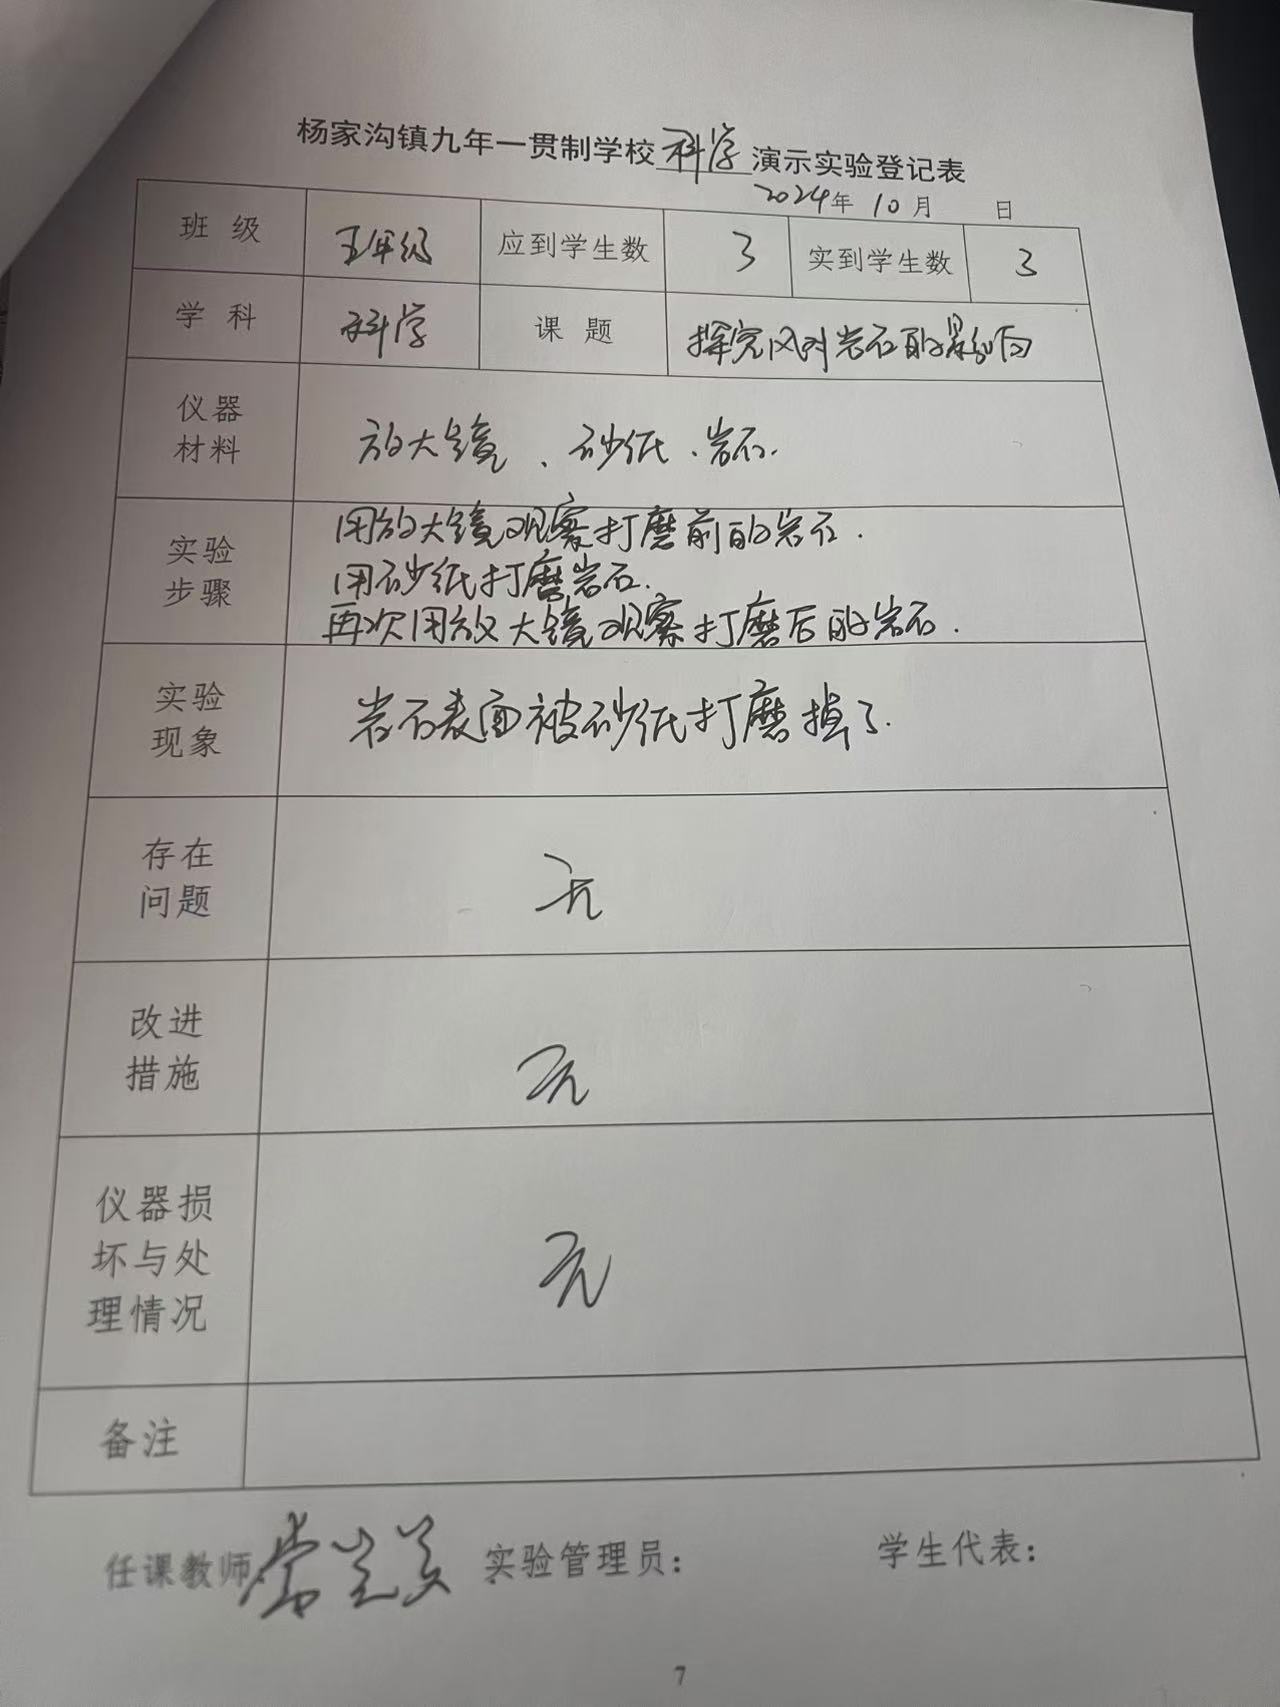 杨家沟镇九年一贯制学校科学演示实验登记表
2024年 10月 日
班 级 五年级 应到学生数 3 实到学生数 3
学 科 科学 课 题 探究风对岩石的影响
仪器
材料
放大镜、砂纸、岩石.
实验
步骤
用放大镜观察打磨前的岩石.
用砂纸打磨岩石.
再次用放大镜观察打磨后的岩石.
实验
现象
岩石表面被砂纸打磨掉了.
存在
问题
无
改进
措施
无
仪器损
坏与处
理情况
无
备注
任课教师 实验管理员： 学生代表：
7